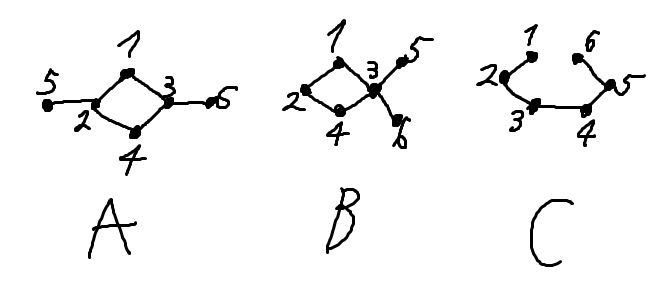 1
5 3 6
2
4
A
1
5
3
2
4
6
B
1 6
2
5
3 4
C